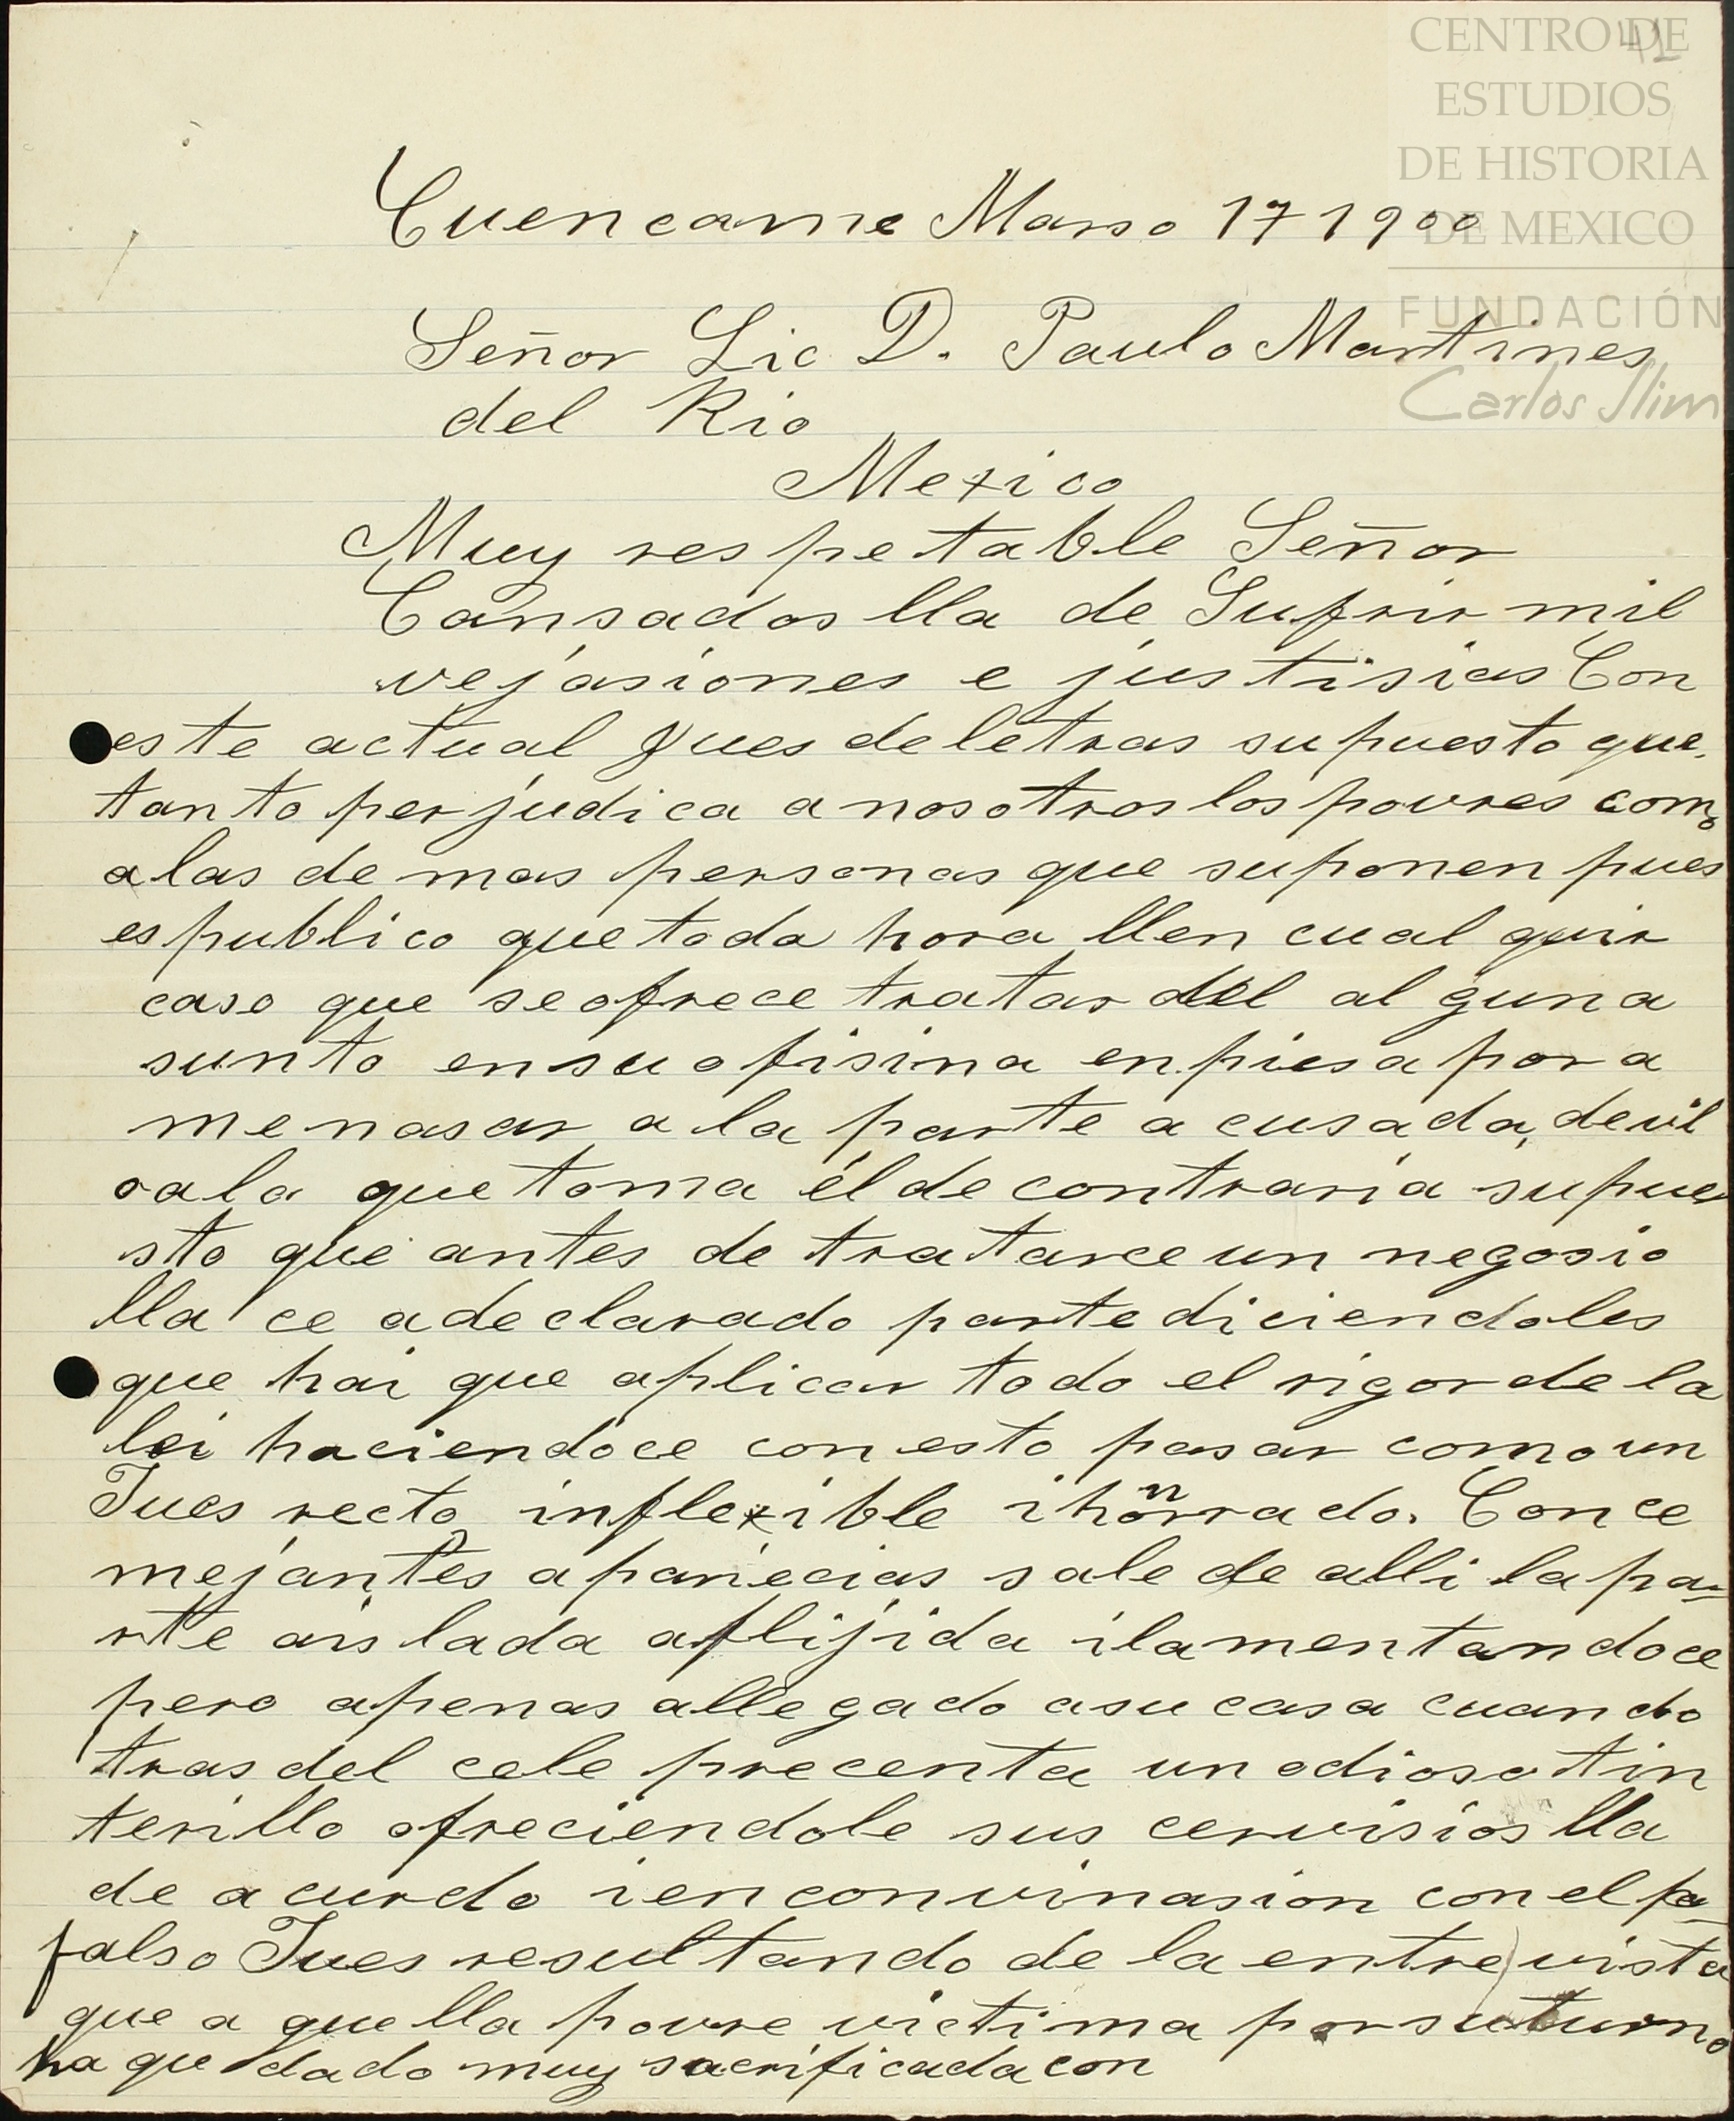 CENTRO DE
ESTUDIOS
DE HISTORIA
DE MEXICO
FUNDACIÓN
Carlos Slim
41
Cuencame Marso 17 1900
Señor Lic D. Paulo Martines
del Rio
Mexico
Muy respetable Señor
Cansados lla de Sufrir mil
vejasiones e justisias Con
este actual Jues de letras supuesto que
tanto perjudica a nosotros los povres como
a las de mas personas que suponen pues
es publico que toda hora llen cual quir
caso que se ofrece tratar del al guna
sunto en su ofisina enpiesa por a
menasar a la parte a cusada, devil
o a la que toma él de contraria supue
sto que antes de tratarce un negosio
lla ce a declarado parte diciendoles
que hai que aplicar todo el rigor de la
lei haciendoce con esto pasar como un
Jues recto, inflexible i honrrado. Con ce
mejantes apariecias sale de alli la pa-
rte aislada aflijida i lamentandoce
pero apenas allegado a su casa cuando
tras del cele precenta un odioso tin
terillo ofreciendole sus cervisios lla
de acurdo i en convinasion con el pa
falso Jues resultando de la entrevista
que a quella povre victima por su turno
ha quedado muy sacrificada con